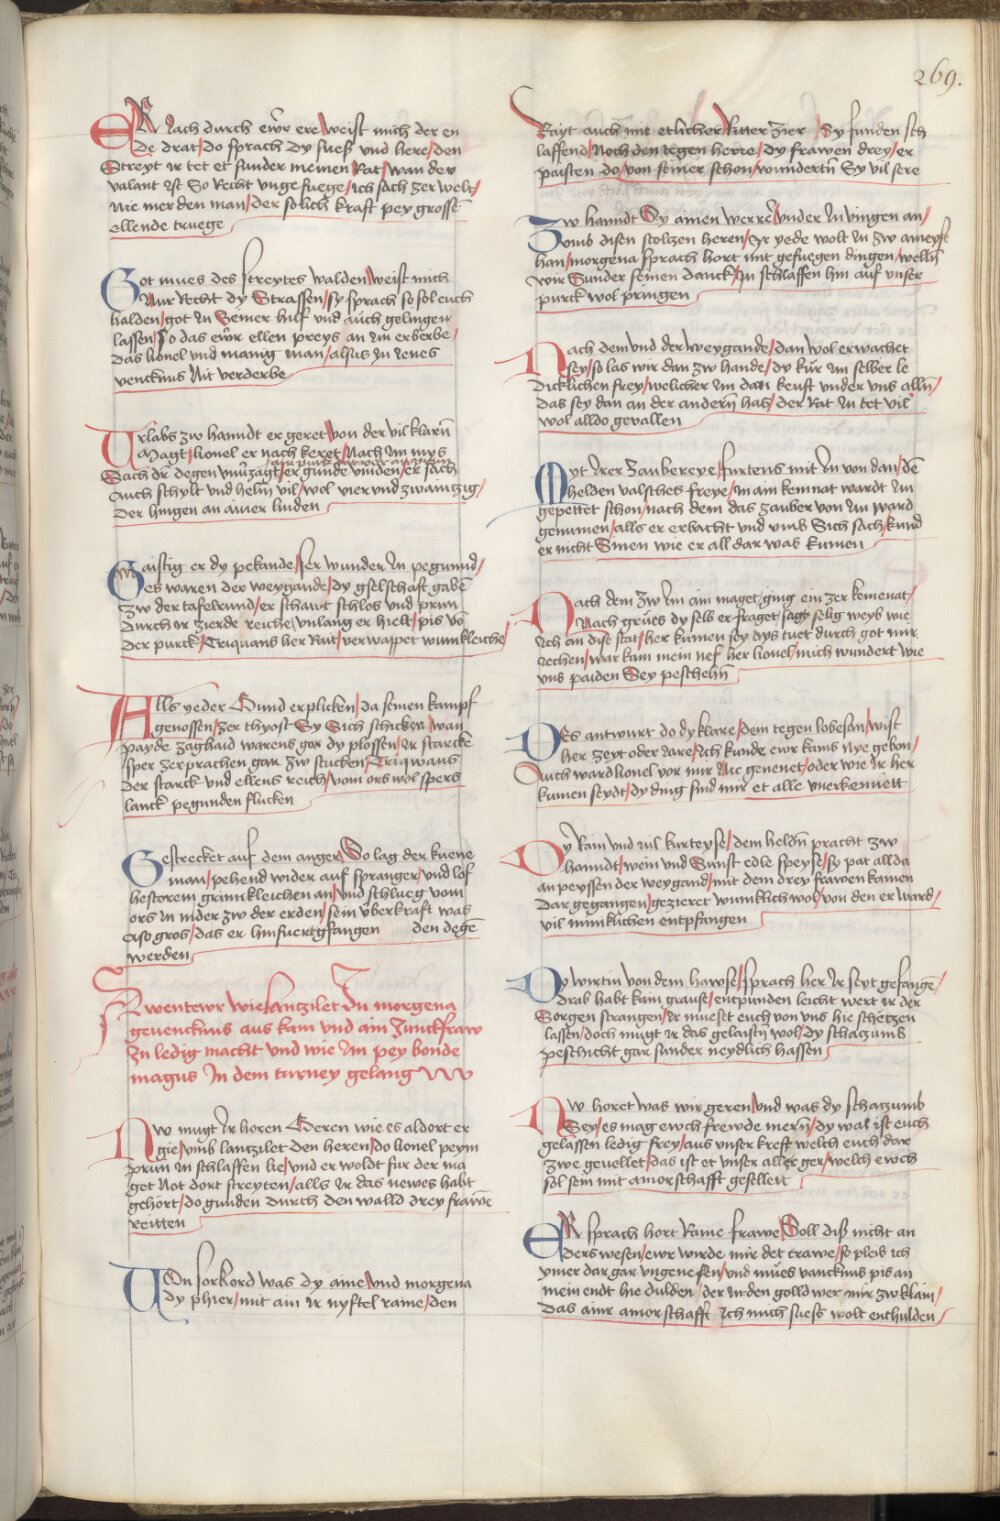 269.
ER Jach durch ewr ere/weist mich der en
de drat/do sprach dy suess vnd here/den
Streyt ir tet et sunder meinen Rat/wan der
valant ist So Recht vngefuege/ich sach zer welt/
nie mer den man/der solich kraft pey grossem̄
ellende truege
Got mues des streytes walden/weist mich
Nur Recht dy Strassen/sy sprach so sol euch
halden/got in Seiner hilf vnd auch gelingen
lassen/So das ewr ellen preys an im erberbe/
das lionel vnd manig man/alsus in Jenes
venckhnus Nit verderbe
Vrlabs zw hanndt er geret/von der vil klarn̄
Magt/lionel er nach keret/Nach im mys
Sach dir degen vnuerzagt/er gunde vinden/er sach
Auch schylt vnd helm vil/wol vier vnd zwaintzig/
Der hiengen an ainer linden
Gaistig er dy pekande/ser wunder in pegunnd/
es waren der weygande/dy gselschaft gaben̄
zw der tafelrund/er schaut schlos vnd prun
durch ir zierde reiche/vnlang er hielt/pis vō
Der purck/Triquans her Rait/verwappet wunikleiche
Alls yeder Gund erplicken/da seinen kampf
genossen/zer thyost Sy Sich schicken/wan
payde zaghaid warens gar dy plossen/ir starcke
sper zerprachen gar zw stucken/Triqwans
Der starck vnd ellens reich/vom ors wol spers
lanck pegunden flucken
Gestrecket auf dem anger/So lag der kuene
man/pehend wider auf spranger/vnd lof
hestorem grimickleichen an/vnd schlueg vom
ors in nider zw der erden/sein vberkraft was
also gros/das er hinfuert gfangen den degē
werden
Awentewr wie lantzilet In morgena
geuencknus aus kam vnd ain Junckfraw
zu ledig macht vnd wie im pey bonde
magus In dem turney gelang
Nw mugt ir horen Geren wie es aldort er
gie/vmb lantzilet den heren/do lionel peym
prun in schlaffen lie/vnd er woldt fur der ma
get Not dort streyten/alls ir das newes habt
gehort/do gunden durch den walld drey frawē
reitten
Von sorkord was dy aine/vnd morgena
dy phier/mit ain ir nyftel raine/den
Rayt auch mit etlicher Ritter zier/Sy funden sch
laffend/Noch den tegen herre/dy frawen drey/er
paisten do/von seiner schon/wundertn̄ Sy vil sere
Zw hanndt Sy ainen werre/vnder in vingen an/
vmb disen stoltzen heren/Ir yede wolt in zw ameyse
han/morgena sprach hort mit gefuegen dingen/wellū
wir Sunder seinen danck/in schlaffen hin auf vnser
purck wol pringen
Nach dem vnd der weygande/dan wol erwachet
sey/so las wir dan zw hande/dy kur im selber le
dicklichen frey/welicher im dan keust vnder vns alln̄/
das sey dan an der andern̄ has/der Rat in tet vil
wol alldo gevallen
Mit Irer zaubereye/furtens mit in von dan/dē
helden valsches freye/in ain kemnat wardt im
gepettet schon/nach dem das zauber von im ward
genumen/alls er erbacht vnd vmb Sich sach/kund
er nicht Sinen wie er all dar was kumen
Nach dem zw im ain maget ging ein zer kemenat/
Nach grues dy selb er fraget/sagt selig weyb wie
Ich an dise stat/her kumen sey dys tuet durch got mir
rechen/war kam mein nef her lionel/mich wundert wie
vns paiden Sey peschehn̄
Des antwurt do dy klare/dem tegen lobesan/wist
her zeyt oder Iare/ich kunde ewr kains Nye gehon/
Auch ward lionel vor mir Nie genenet/oder wie ir her
kumen seydt/dy ding sind mir et alle vnerkennett
Dy Rain vnd vil kurteyse/dem heldn̄ pracht zw
hanndt/wein vnd Sunst edle speyse/so pat allda
anpeyssen der weygand/mit dem drey frawen kamen
dar gegangen/gezieret wunicklich wol/von den er ward/
vil minnklichen entpfangen
Dy wirtin von dem hawse/sprach her ir seyt gefangē/
drab habt kain grause/entpunden leicht wert ir der
Sorgen strangen/Ir mueset euch von vns hie schetzen
lassen/doch mugt ir das gelaistn̄ wol/dy schatzumb
peschicht gar sunder neydlich hassen
Nw horet was wir geren/vnd was dy schatzumb
Sey/es mag ewch frewde mern̄/dy wal ist euch
gelassen ledig frey/aus vnser kreft welch euch dare
zwe geuellet/das ist et vnser aller ger/welch ewch
sol sein mit amorschafft gesellett
ER sprach hort Raine frawe/Soll diss nicht an
ders wesen/ewr wirde mir det trawe/so pleib ich
ymer dar gar vngenesen/vnd mues vancknus pis an
mein endt hie dulden/der in den golld wer mir zw klain/
das ainr amorschafft Ich mich suess wolt enthulden